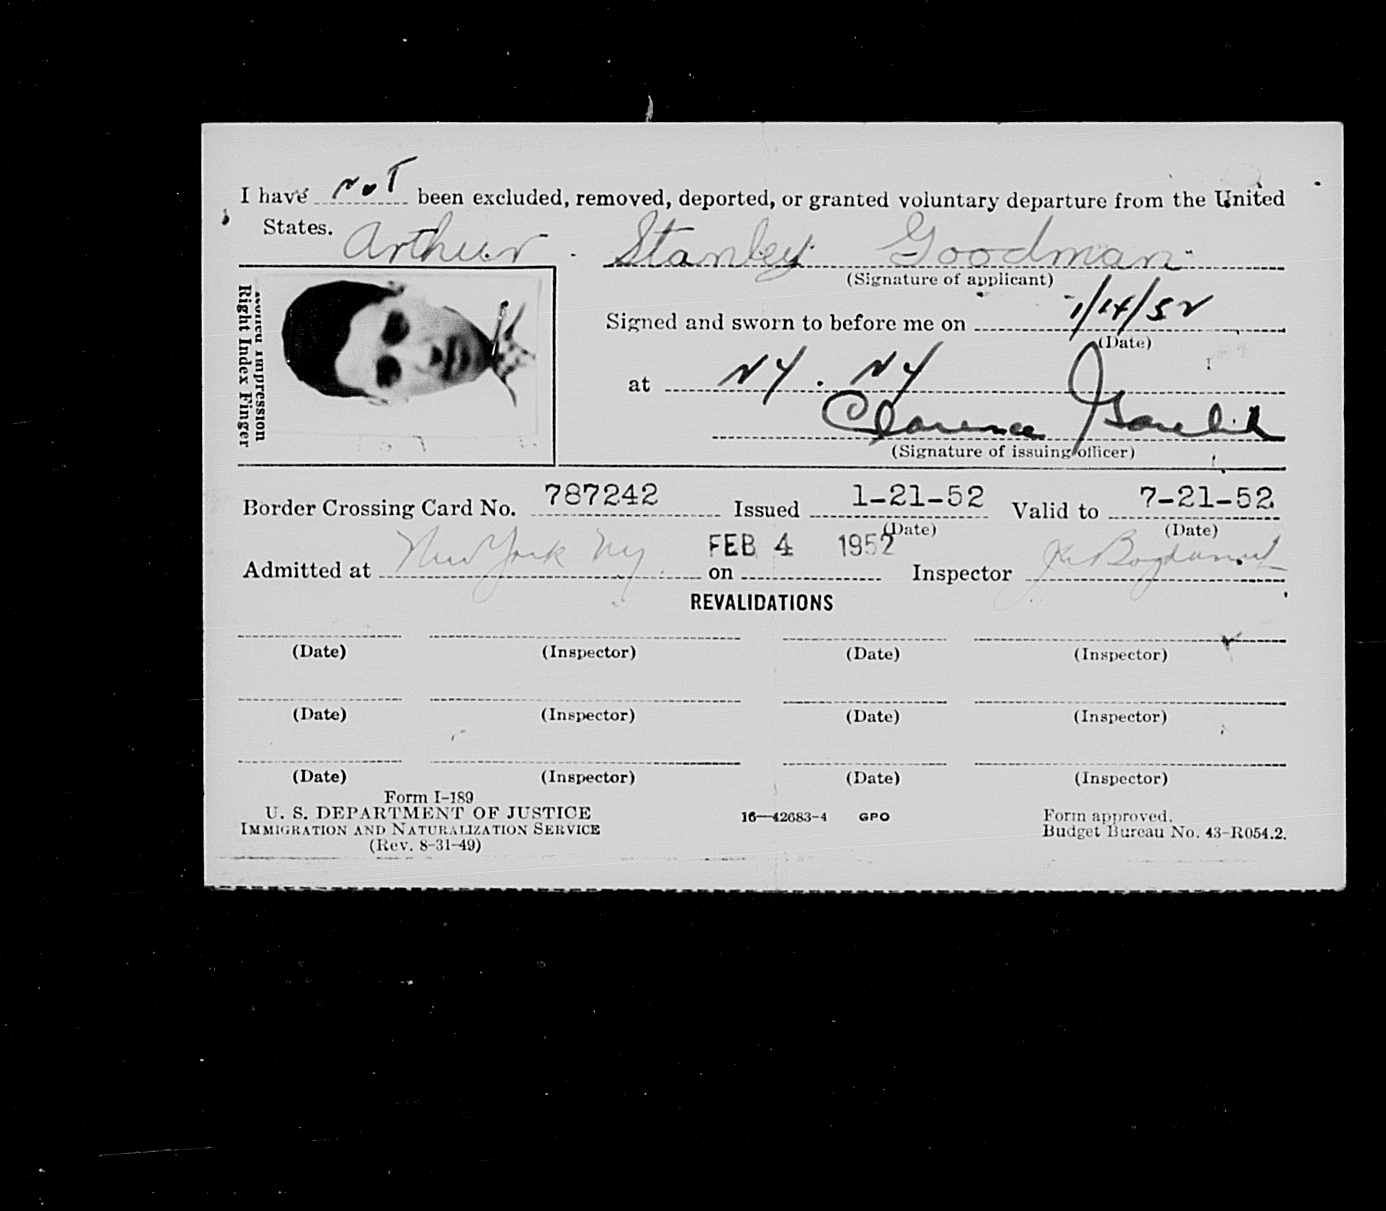 I have not been excluded, removed, deported, or granted voluntary departure from the United
States. Arthur Stanley Goodman
(Signature of applicant)
Rolled Impression
Right Index Finger
Signed and sworn to before me on 1/14/52
(Date)
at NY. NY
Clarence
(Signature of issuing officer)
Border Crossing Card No. 787242 Issued 1-21-52 Valid to 7-21-52
(Date) (Date)
Admitted at New York NY on FEB 4 1952 Inspector
REVALIDATIONS
(Date) (Inspector) (Date) (Inspector)
(Date) (Inspector) (Date) (Inspector)
(Date) (Inspector) (Date) (Inspector)
Form I-189
U. S. DEPARTMENT OF JUSTICE
IMMIGRATION AND NATURALIZATION SERVICE
(Rev. 8-31-49)
16—42683-4 GPO
Form approved.
Budget Bureau No. 43-R054.2.